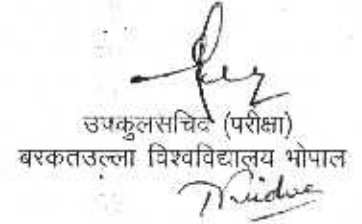 उपकुलसचिव (परीक्षा)
बरकतउल्ला विश्वविद्यालय भोपाल